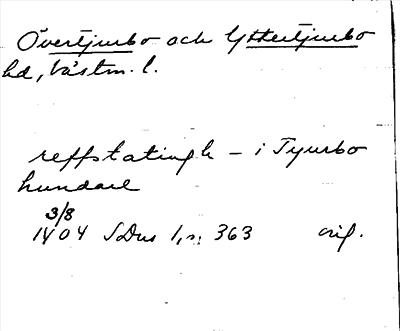 Övertjurbo och Yttertjurbo
hd, Västm. l.
reffstatingh – i Tyurbo
hundare
3/8
1404 SDns 1, s. 363 orig.